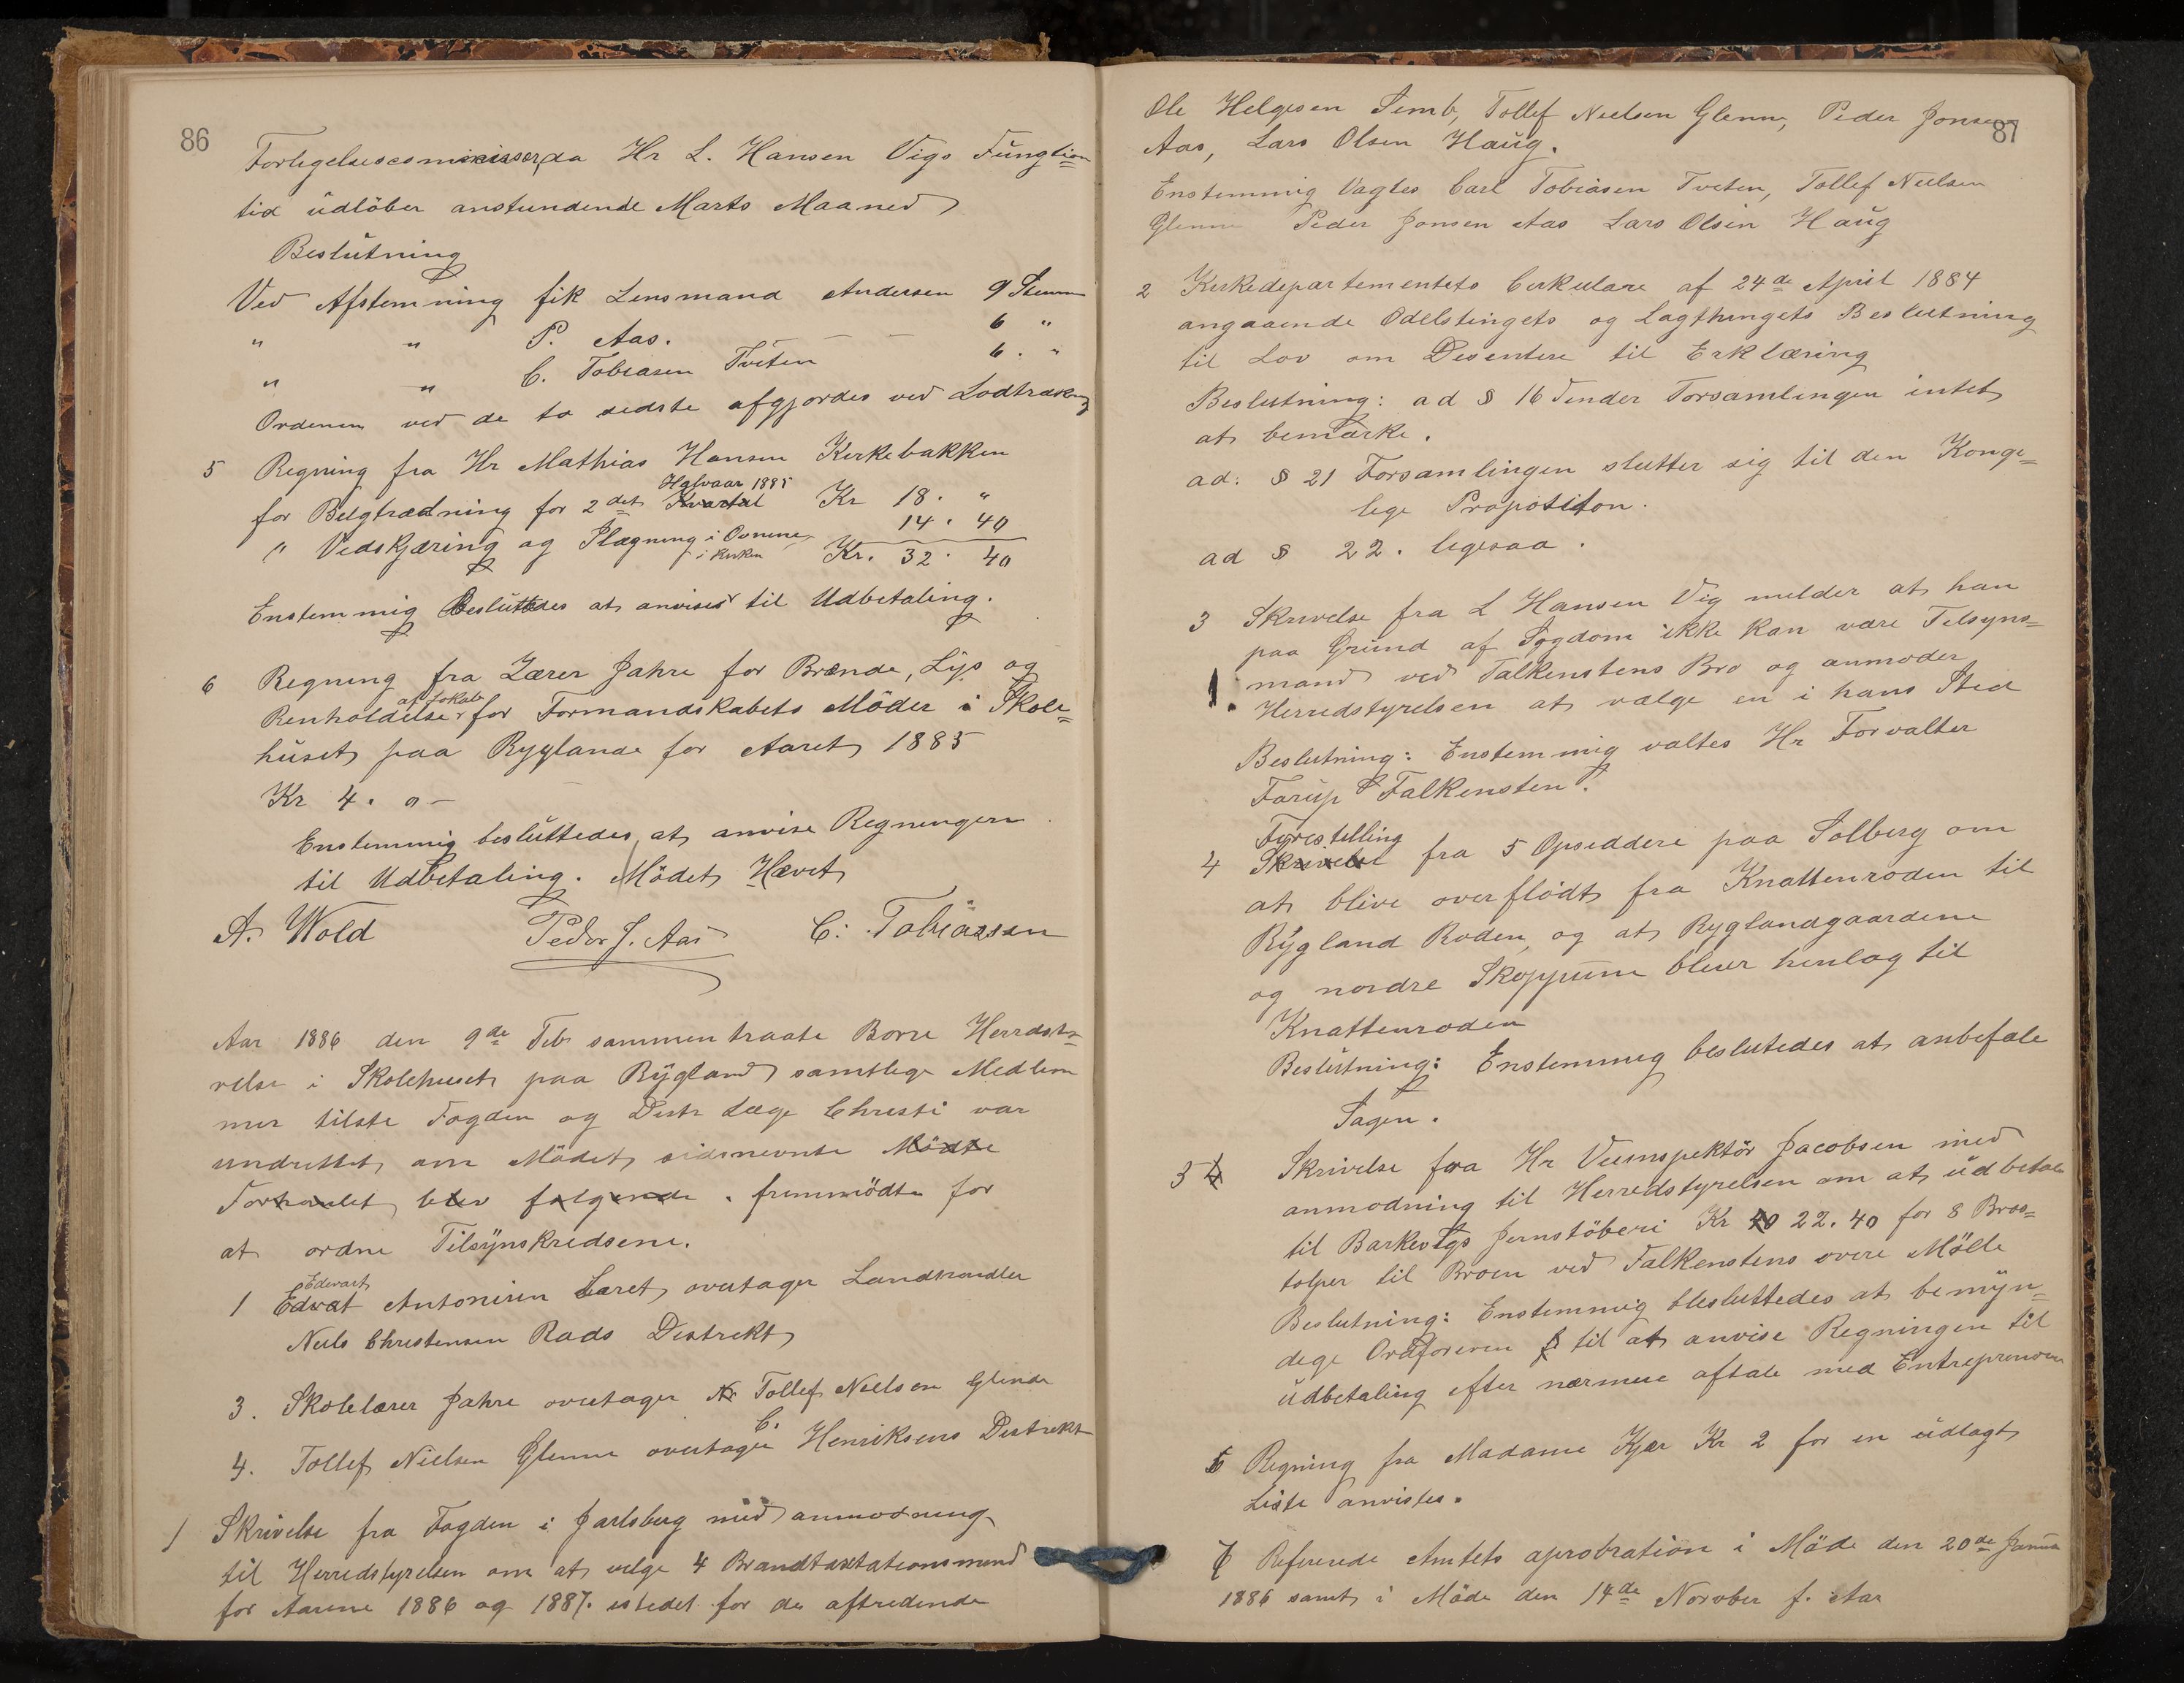 86
Forlegelsescommissær, da Hr L. Hansen Vigs Fungtions=
tid udløber anstundende Marts Maaned
Beslutning
Ved Afstemning fik Lensmand Andersen 9 Stemmer
" " P. Aas. — — 6 "
" " C. Tobiasen Tveten 6. "
Ordenen ved de to sidste afgjordes ved Lodtrækning
5 Regning fra Hr Mathias Hansen Kirkebakken
Halvaar 1885
for Belgtrædning for 2det Kvartal Kr 18. "
" Vedskjæring og Ilægning i Ovnene 14. 40
i Kirken Kr. 32. 40
Enstemmig besluttedes at anvises til Udbetaling.
6 Regning fra Lærer Jahre for Brænde, Lys og
af Lokale
Renholdelse for Formandskabets Möder i Skole=
huset paa Ryglande for Aaret 1885
Kr 4. o –
Enstemmig besluttedes at anvise Regningen
til Udbetaling. Mödet Hævet
A. Wold Peder J. Aas C. Tobiassen
Aar 1886 den 9de Feb sammentraate Borre Herredsty=
relse i Skolehuset paa Rygland samtlige Medlem
mer tilste Fogden og Distr Læge Christi var
undrettet om Mödet sidsnevnte Mödte
Forhanlet blev følgende. fremmödte for
at ordne Tilsynskredsene.
Edvart
1 Edvat Antonisen Læret overtager Landhandler
Niels Christensen Rods Destrekt
3. Skolelærer Jahre overtager N. Tollef Nielsen Glende
C.
4. Tollef Nielsen Glenne overtager Henriksens Destrekt
1 Skrivelse fra Fogden i Jarlsberg med anmodning
til Herredstyrelsen om at velge 4 Brandtaxtationsmend
for Aarene 1886 og 1887. istedet for de aftredende
87
Ole Helgesen Semb, Tollef Nielsen Glenne, Peder Jonsen
Aas, Lars Olsen Haug.
Enstemmig Vagtes Carl Tobiasen Tveten, Tollef Nielsen
Glenne Peder Jonsen Aas Lars Olsen Haug
2 Kirkedepartementets Cirkulære af 24de April 1884
angaaende Odelstingets og Lagthingets Beslutning
til Lov om Desentere til Erklæring
Beslutning: ad § 16 Finder Forsamlingen intet
at bemærke.
ad: § 21 Forsamlingen slutter sig til den Konge=
lige Propositon.
ad § 22. ligesaa.
3 Skrivelse fra L Hansen Vig melder at han
paa Grund af Sygdom ikke kan være Tilsyns=
mand ved Falkenstens Bro og anmoder
Herredstyrelsen at vælge en i hans Sted
Beslutning: Enstemmig valtes Hr Forvalter
Forup Falkensten.
Forestelling
4 Skrivelse fra 5 Opseddere paa Solberg om
at blive overflödt fra Knattenroden til
Rygland Roden, og at Ryglandgaardene
og nordre Skoppum bliver henlag til
Knattenroden
Beslutning: Enstemmig beslutedes at anbefale
Sagen.
5 4 Skrivelse fra Hr Veiinspektör Jacobsen med
anmodning til Herredstyrelsen om at udbetale
til Barkevigs Jernstöberi Kr 40 22.40 for 8 Bros=
tolper til Broen ved Falkenstens overe Mölle
Beslutning: Enstemmig besluttedes at bemyn=
dege Ordføreren til at anvise Regningen til
udbetaling efter nærmere aftale med Entreprenören
6 Regning fra Madame Kjær Kr 2 for en udlagt
Liste anvistes.
7 Refererede Amtets aprobration i Möde den 20de Janua
1886 samt i Möde den 14de Novber f. Aar